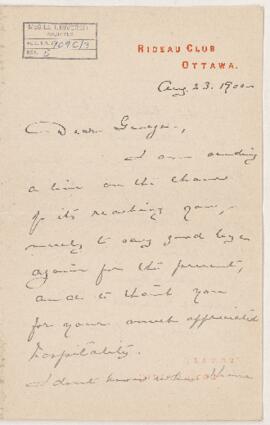 McGILL UNIVERSITY
ARCHIVES
ACC. NO. 909C/3
REF. 5
RIDEAU CLUB
OTTAWA.
Aug. 23. 1900
Dear George,
I am sending
a line on the chance
of its reaching you,
merely to say good bye
again for the present,
and to thank you
for your much appreciated
hospitality.
I don't know when